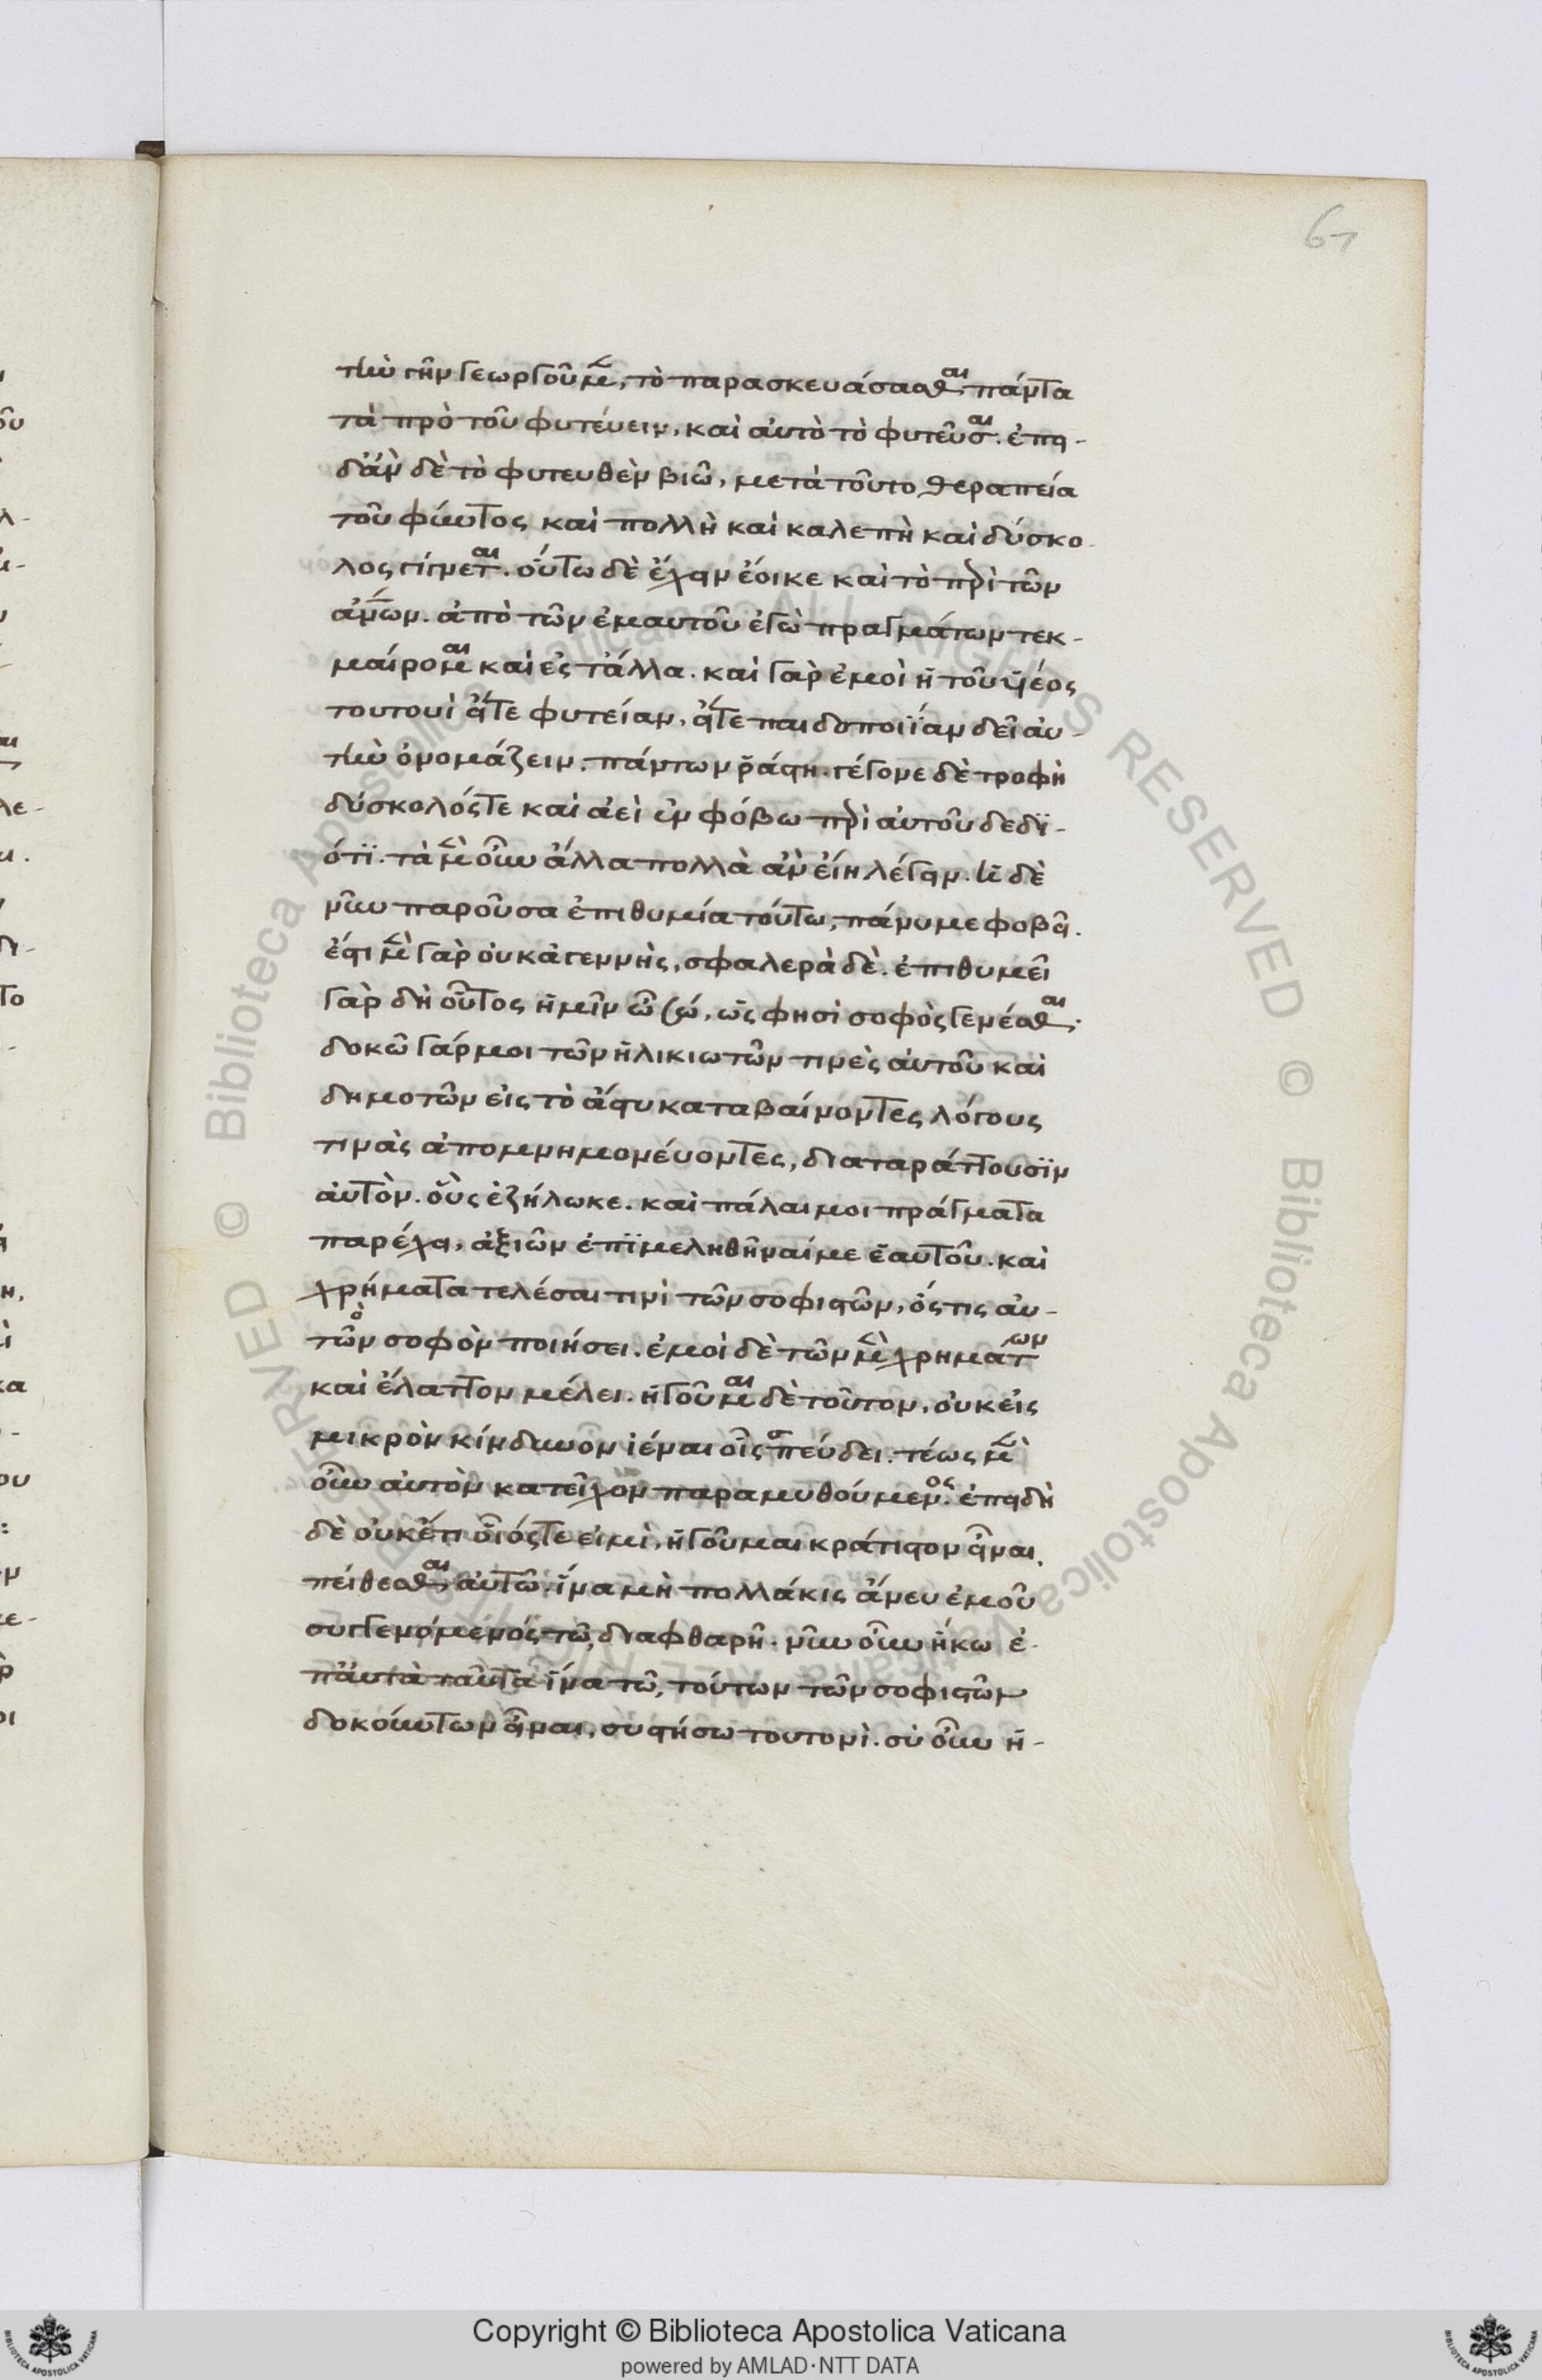 67
τὴν γῆν γεωργοῦμεν, τὸ παρασκευάσασθαι πάντα
τὰ πρὸ τοῦ φυτεύειν, καὶ αὐτὸ τὸ φυτεῦσαι. ἐπει-
δὰν δὲ τὸ φυτευθὲν βιῶ, μετὰ τοῦτο θεραπεία
τοῦ φύντος καὶ πολλὴ καὶ καλεπὴ καὶ δύσκο-
λος γίγνεται. οὕτω δὲ ἔχειν ἔοικε καὶ τὸ περὶ τῶν
ἀνων. ἀπὸ τῶν ἐμαυτοῦ ἐγὼ πραγμάτων τεκ-
μαίρομαι καὶ ἐς τἄλλα. καὶ γὰρ ἐμοὶ ἡ τοῦ ὑέος
τουτουὶ εἴτε φυτείαν, εἴτε παιδοποιΐαν δεῖ αὐ-
τὴν ὀνομάζειν, πάντων ῥάστη γέγονε δὲ τροφὴ
δύσκολός τε καὶ ἀεὶ ἐν φόβω περὶ αὐτοῦ δεδι-
ότι. τὰ μὲν οὖν ἄλλα πολλὰ ἂν εἴη λέγειν. ἡ δὲ
νῦν παροῦσα ἐπιθυμία τούτω, πάνυ με φοβεῖ.
ἔστι μὲν γὰρ οὐκ ἀγεννὴς, σφαλερὰ δὲ. ἐπιθυμεῖ
γὰρ δὴ οὗτος ἡμῖν ὦ σώ, ὥς φησι σοφὸς γενέσθαι.
δοκῶ γάρ μοι τῶν ἡλικιωτῶν τινὲς αὐτοῦ καὶ
δημοτῶν εἰς τὸ ἄστυ καταβαίνοντες λόγους
τινὰς ἀπομνημονεύοντες, διαταράττουσιν
αὐτὸν. οὓς ἐζήλωκε. καὶ πάλαι μοι πράγματα
παρέχει, ἀξιῶν ἐπιμεληθῆναί με ἑαυτοῦ. καὶ
χρήματα τελέσαι τινὶ τῶν σοφιστῶν, ὅς τις αὐ-
τὸν σοφὸν ποιήσει. ἐμοὶ δὲ τῶν μὲν χρημάτων
καὶ ἔλαττον μέλει. ἡγοῦμαι δὲ τοῦτον, οὐκ εἰς
μικρὸν κίνδυνον ἰέναι οἷς σπεύδει. τέως μὲν
οὖν αὐτὸν κατεῖχον παραμυθούμενος. ἐπειδὴ
δὲ οὐκέτι οἷός τε εἰμὶ, ἡγοῦμαι κράτιστον εἶναι
πείθεσθαι αὐτῶ. ἵνα μὴ πολλάκις ἄνευ ἐμοῦ
συγγενόμενός τω διαφθαρῆ. νῦν οὖν ἥκω ἐ-
π' αὐτὰ ταῦτα ἵνα τῶ, τούτων τῶν σοφιστῶν
δοκούντων εἶναι, συστήσω τουτονὶ. σὺ οὖν ἡ-
Copyright © Biblioteca Apostolica Vaticana
powered by AMLAD·NTT DATA